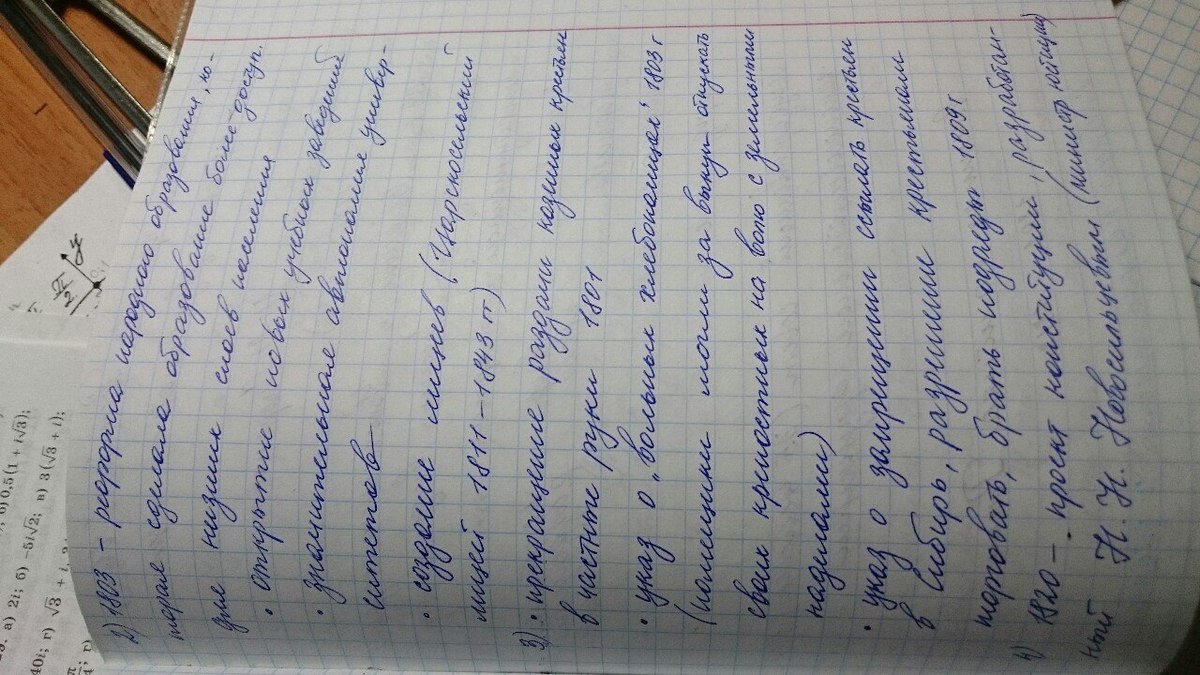 2) 1803 - реформа народного образования, ко-
торая сделала образование более доступ.
для низших слоев населения
• открытие новых учебных заведений
• значительная автономия универ-
ситетов
• создание лицеев (Царскосельский
лицей 1811-1843 гг)
3) • прекращение раздачи казенных крестьян
в частные руки 1801
• указ о „вольных хлебопашцах" 1803 г
(помещики могли за выкуп отпускать
своих крепостных на волю с земельными
наделами)
• указ о запрещении ссылать крестьян
в Сибирь, разрешение крестьянам
торговать, брать подряды 1809 г
4) 1820 - проект конституции, разработан-
ный Н. Н. Новосильцевым (министр юстиции)
29. а) 2i; б) -5i√2; в) 3(√3 + i);
40i; г) √3 + i
б) 0,5(1 + i√3);
π
2
y